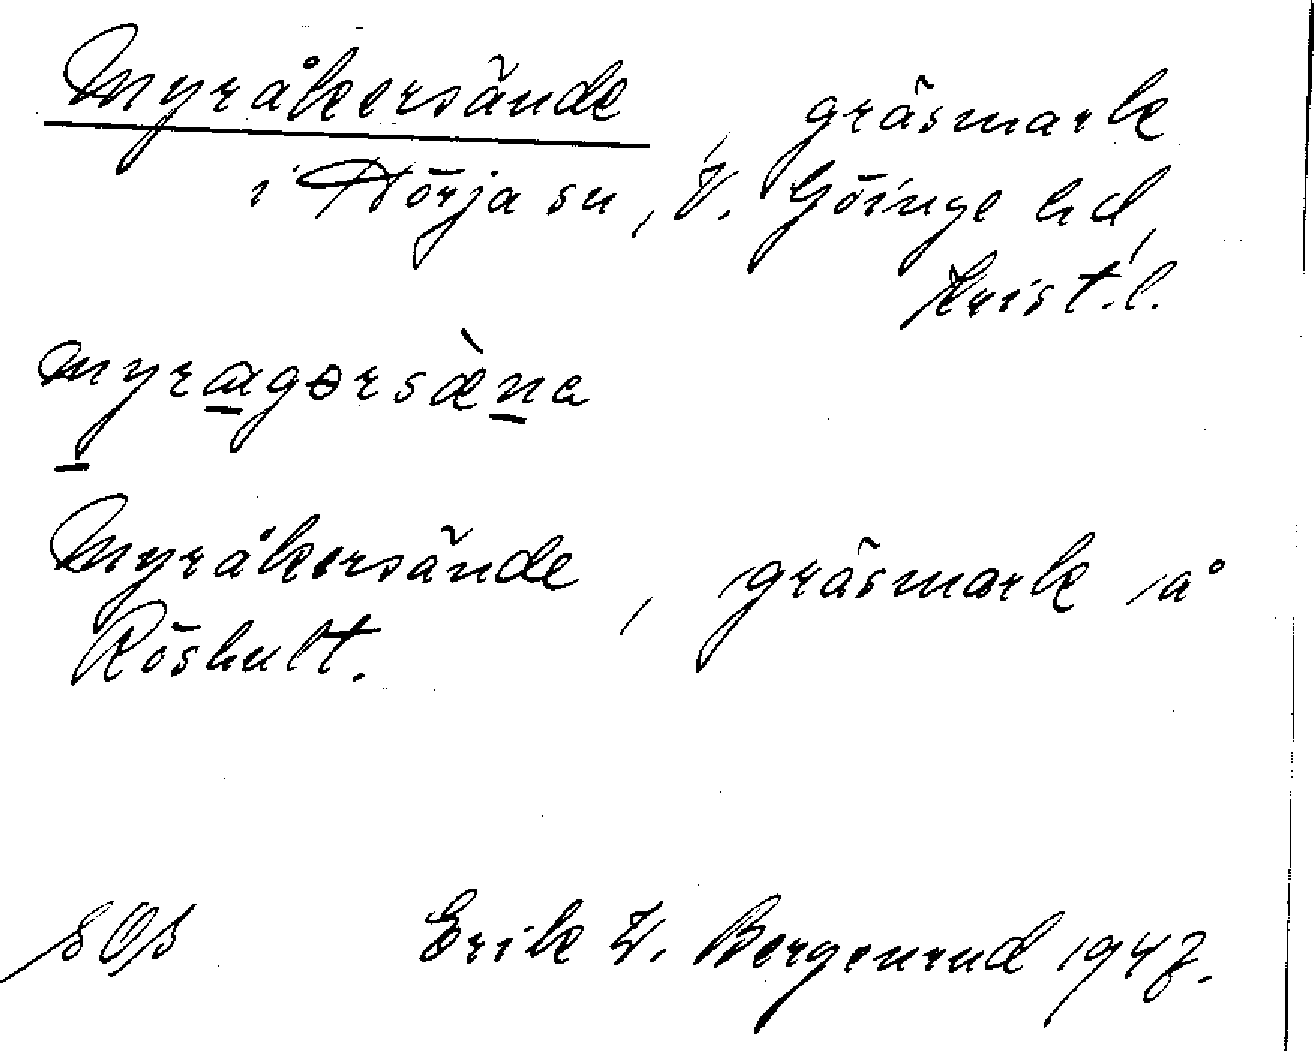 Myråkersände, gräsmark
i Nörja sn, V. Göinge hd,
Krist. l.
myragərsæ̀na
Myråkersände, gräsmark å
Röshult.
Erik W. Bergenrud 1947.